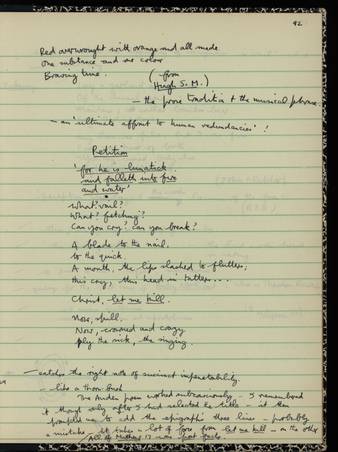 92
Red overwrought with orange and all made
One substance and one colour
Braving time.
(from
Hugh S. M.)
— the prose tradition & the musical phrase.
— an 'ultimate affront to human redundancies' !
Petition
'for he is lunatick
and falleth into fire
and water'
What? vail?
What? fetching?
Can you cry? can you break?
A blade to the nail,
to the quick.
A mouth, the lips slashed to flutter,
this cry, this head in tatters . . .
Christ, let me kill.
Now, spill.
Now, crowned and crazy
ply the sick, the singing.
— catches the right note of succinct impenetrability.
— like a thorn-bush
The Auden poem worked subconsciously — I remembered
it though only after I had selected the title — it then
prompted me to add the epigraph's three lines — probably
a mistake — It takes a lot of force from let me kill — on the other
All of Matthew 17 was